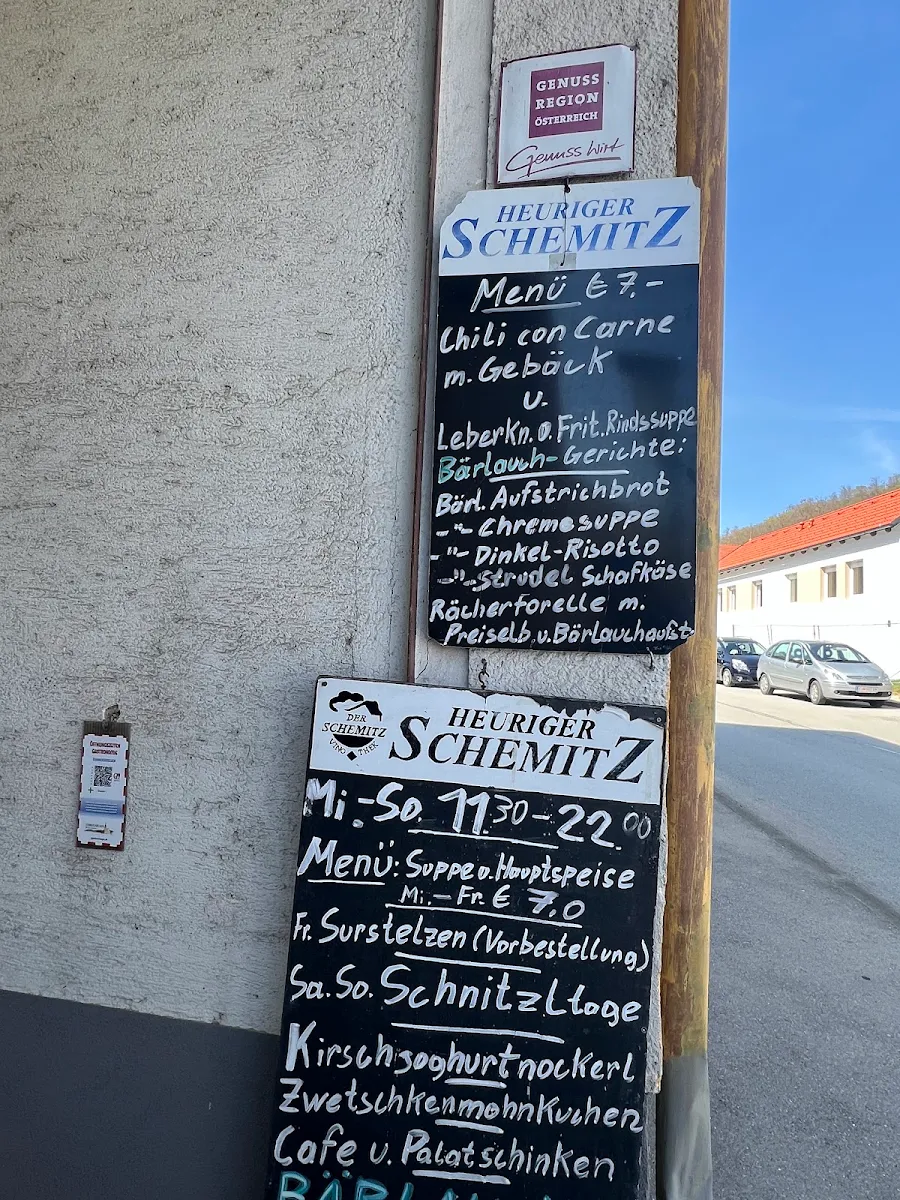 GENUSS
REGION
ÖSTERREICH
Genuss Wirt
HEURIGER
SCHEMITZ
Menü € 7.-
Chili con Carne
m. Gebäck
u.
Leberkn. o. Frit. Rindssuppe
Bärlauch-Gerichte:
Bärl. Aufstrichbrot
-"- Chremesuppe
-"- Dinkel-Risotto
-"- Strudel Schafkäse
Rächerforelle m.
Preiselb. u. Bärlauchaufst
DER
SCHEMITZ
VINOTHEK
HEURIGER
SCHEMITZ
Mi.-So. 11.30-22.00
Menü: Suppe o. Hauptspeise
Mi.-Fr. € 7.0
Fr. Surstelzen (Vorbestellung)
Sa. So. Schnitzltage
Kirschjoghurtnockerl
Zwetschkenmohnkuchen
Cafe u. Palatschinken
ÖFFNUNGSZEITEN
GASTRONOMIE